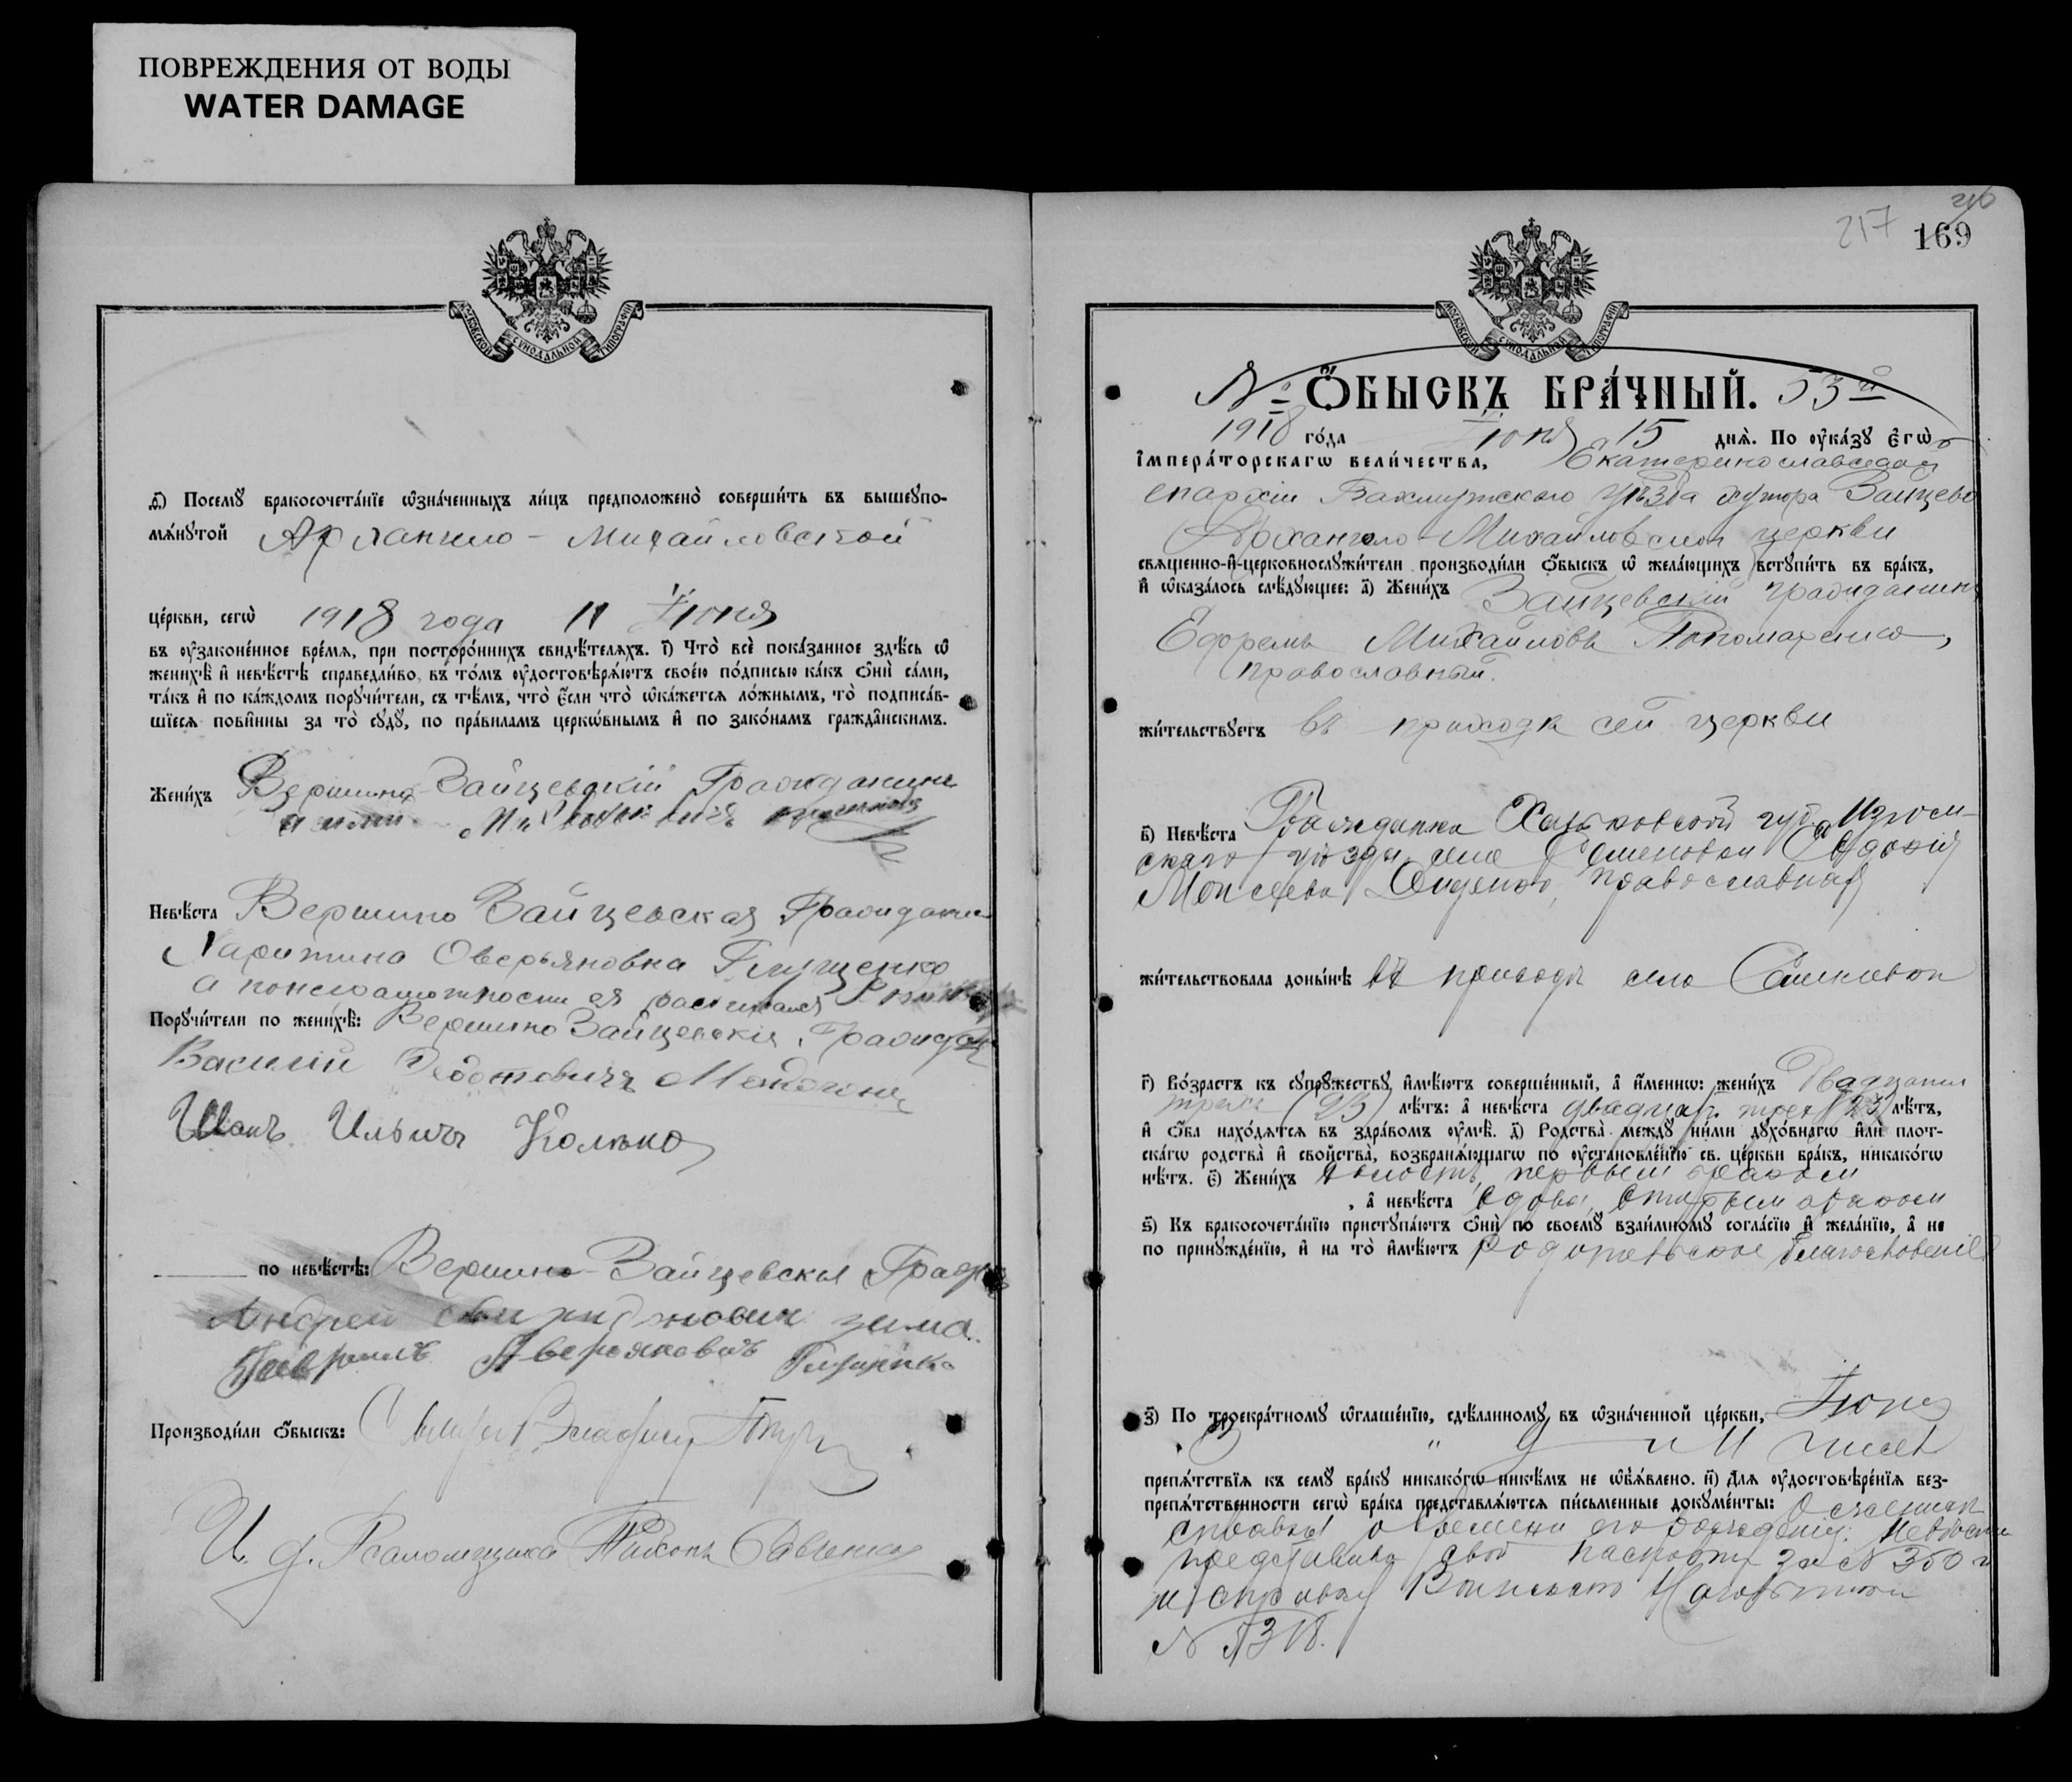 ПОВРЕЖДЕНИЯ ОТ ВОДЫ
WATER DAMAGE
МОСКОВСКОЙ СѴНОДАЛЬНОЙ ТИПОГРАФІИ
д҃) Посемꙋ бракосочета́нїе ѡ҆зна́ченныхъ ли́цъ предположено̀ соверши́ть въ вышеꙋпо-
мѧ́нꙋтой Архангело - Михайловской
це́ркви, сегѡ̀ 1918 года 11 Іюня
въ ᲂу҆законе́нное вре́мѧ, при посторо́ннихъ свидѣ́телѧхъ. і҃) Что̀ всѐ пока́занное здѣ́сь ѡ҆
женихѣ̀ и҆ невѣ́стѣ справедли́во, въ то́мъ ᲂу҆достовѣрѧ́ютъ свое́ю по́дписью ка́къ ѻ҆нѝ са́ми,
та́къ и҆ по ка́ждомъ порꙋчи́тели, съ тѣ́мъ, что̀ є҆́сли что̀ ѡ҆ка́жетсѧ ло́жнымъ, то̀ подписа́в-
шїесѧ пови́нны за то̀ сꙋдꙋ̀, по пра́виламъ церко́внымъ и҆ по зако́намъ гражда̑нскимъ.
Жени́хъ Вершино-Зайцевскій Гражданинъ
Невѣ́ста Вершино Зайцевская Граждан
Харитина Оверьяновна Глущенко
а по неграмотности ея росписался
Порꙋчи́тели по женихѣ̀: Вершино Зайцевскія, Гражд
Василій Федотовичъ
Иванъ Ильичъ Колько
по невѣ́стѣ: Вершино-Зайцевскія Гражд
Андрей зима
Гаврилъ Аверяновичъ Глущенко
Производи́ли ѻ҆́быскъ:
И. д. Псаломщика Тихонъ Савченко
217 169
МОСКОВСКОЙ СѴНОДАЛЬНОЙ ТИПОГРАФІИ
№ Ѻ҆́БЫСКЪ БРА́ЧНЫЙ. 53й
1918 го́да Іюня 15 днѧ̀. По ᲂу҆ка́зꙋ є҆гѡ̀
і҆мпера́торскагѡ вели́чества, Екатеринославской
епархіи Бахмутскаго уѣзда хутора Зайцево
Архангело-Михайловской церкви
свѧще́нно-и҆-церковнослꙋжи́тели производи́ли ѻ҆́быскъ ѡ҆ жела́ющихъ встꙋпи́ть въ бра́къ,
и҆ ѡ҆каза́лось слѣ́дꙋющее: а҃) Жени́хъ Зайцевскій гражданинъ
Ефремъ Михайловъ Пономаренко,
православный.
жи́тельствꙋетъ въ приходѣ сей церкви
в҃) Невѣ́ста Гражданка Харьковской губ. Изюм-
скаго уѣзда села Семеновки Евдокія
Моисеева православная
жи́тельствовала доны́нѣ въ приходѣ села Семеновки
г҃) Во́зрастъ къ сꙋпрꙋ́жествꙋ и҆мѣ́ютъ соверше́нный, а҆ и҆́меннѡ: жени́хъ Двадцати
трехъ (23) лѣ́тъ: а҆ невѣ́ста двадцат. трех (23) лѣ́тъ,
и҆ ѻ҆́ба нахо́дѧтсѧ въ здра́вомъ ᲂу҆мѣ̀. д҃) Родства̀ междꙋ̀ ни́ми дꙋхо́внагѡ и҆лѝ плот-
ска́гѡ родства̀ и҆ сво́йства̀, возбранѧ́ющагѡ по ᲂу҆становле́нїю св. це́ркви бра́къ, никако́гѡ
нѣ́тъ. є҃) Жени́хъ холостъ, первымъ бракомъ
, а҆ невѣ́ста вдова, вторымъ бракомъ
ѕ҃) Къ бракосочета́нїю пристꙋпа́ютъ ѻ҆нѝ по своемꙋ̀ взаи́мномꙋ согла́сїю и҆ жела́нїю, а҆ не
по принꙋжде́нїю, и҆ на то̀ и҆мѣ́ютъ родительское благословеніе
з҃) По троекра́тномꙋ ѡ҆глаше́нїю, сдѣ́ланномꙋ въ ѡ҆зна́ченной це́ркви, Іюня
9 и 11 чиселъ
препѧ́тствїѧ къ семꙋ̀ бра́кꙋ никако́гѡ никѣ́мъ не ѡ҆б̾ѧ́влено. и҃) Длѧ ᲂу҆достовѣре́нїѧ без-
препѧ́тственности сегѡ̀ бра́ка представлѧ́ютсѧ пи́сьменные докꙋме́нты:
справка о времени его рожденія; Невѣста
представила свой паспортъ за № 350 и
справку Воинскаго Начальника
№ 7318.